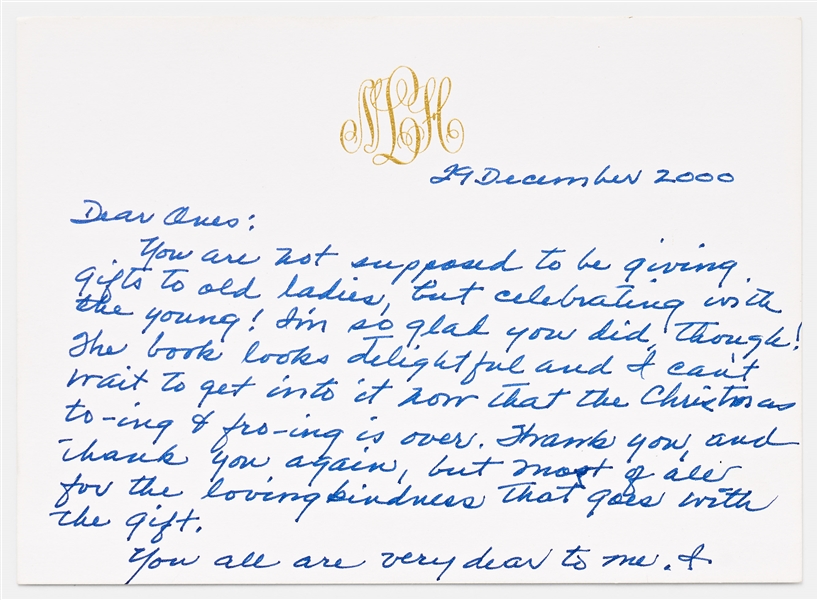 NLH
29 December 2000
Dear Ones:
You are not supposed to be giving
gifts to old ladies, but celebrating with
the young! I'm so glad you did, though!
The book looks delightful and I can't
wait to get into it now that the Christmas
to-ing & fro-ing is over. Thank you, and
thank you again, but most of all
for the lovingkindness that goes with
the gift.
You all are very dear to me. I